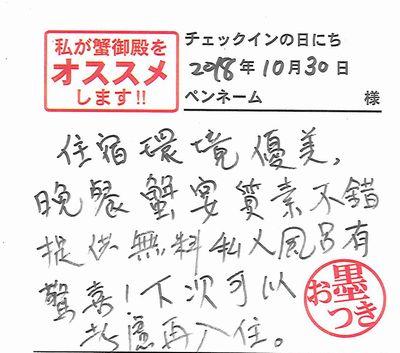 私が蟹御殿を
オススメ
します!!
チェックインの日にち
2018年10月30日
ペンネーム 様
住宿環境優美,
晚餐蟹宴質素不錯
提供無料私人風呂有
驚喜!下次可以
考慮再入住。
お墨つき